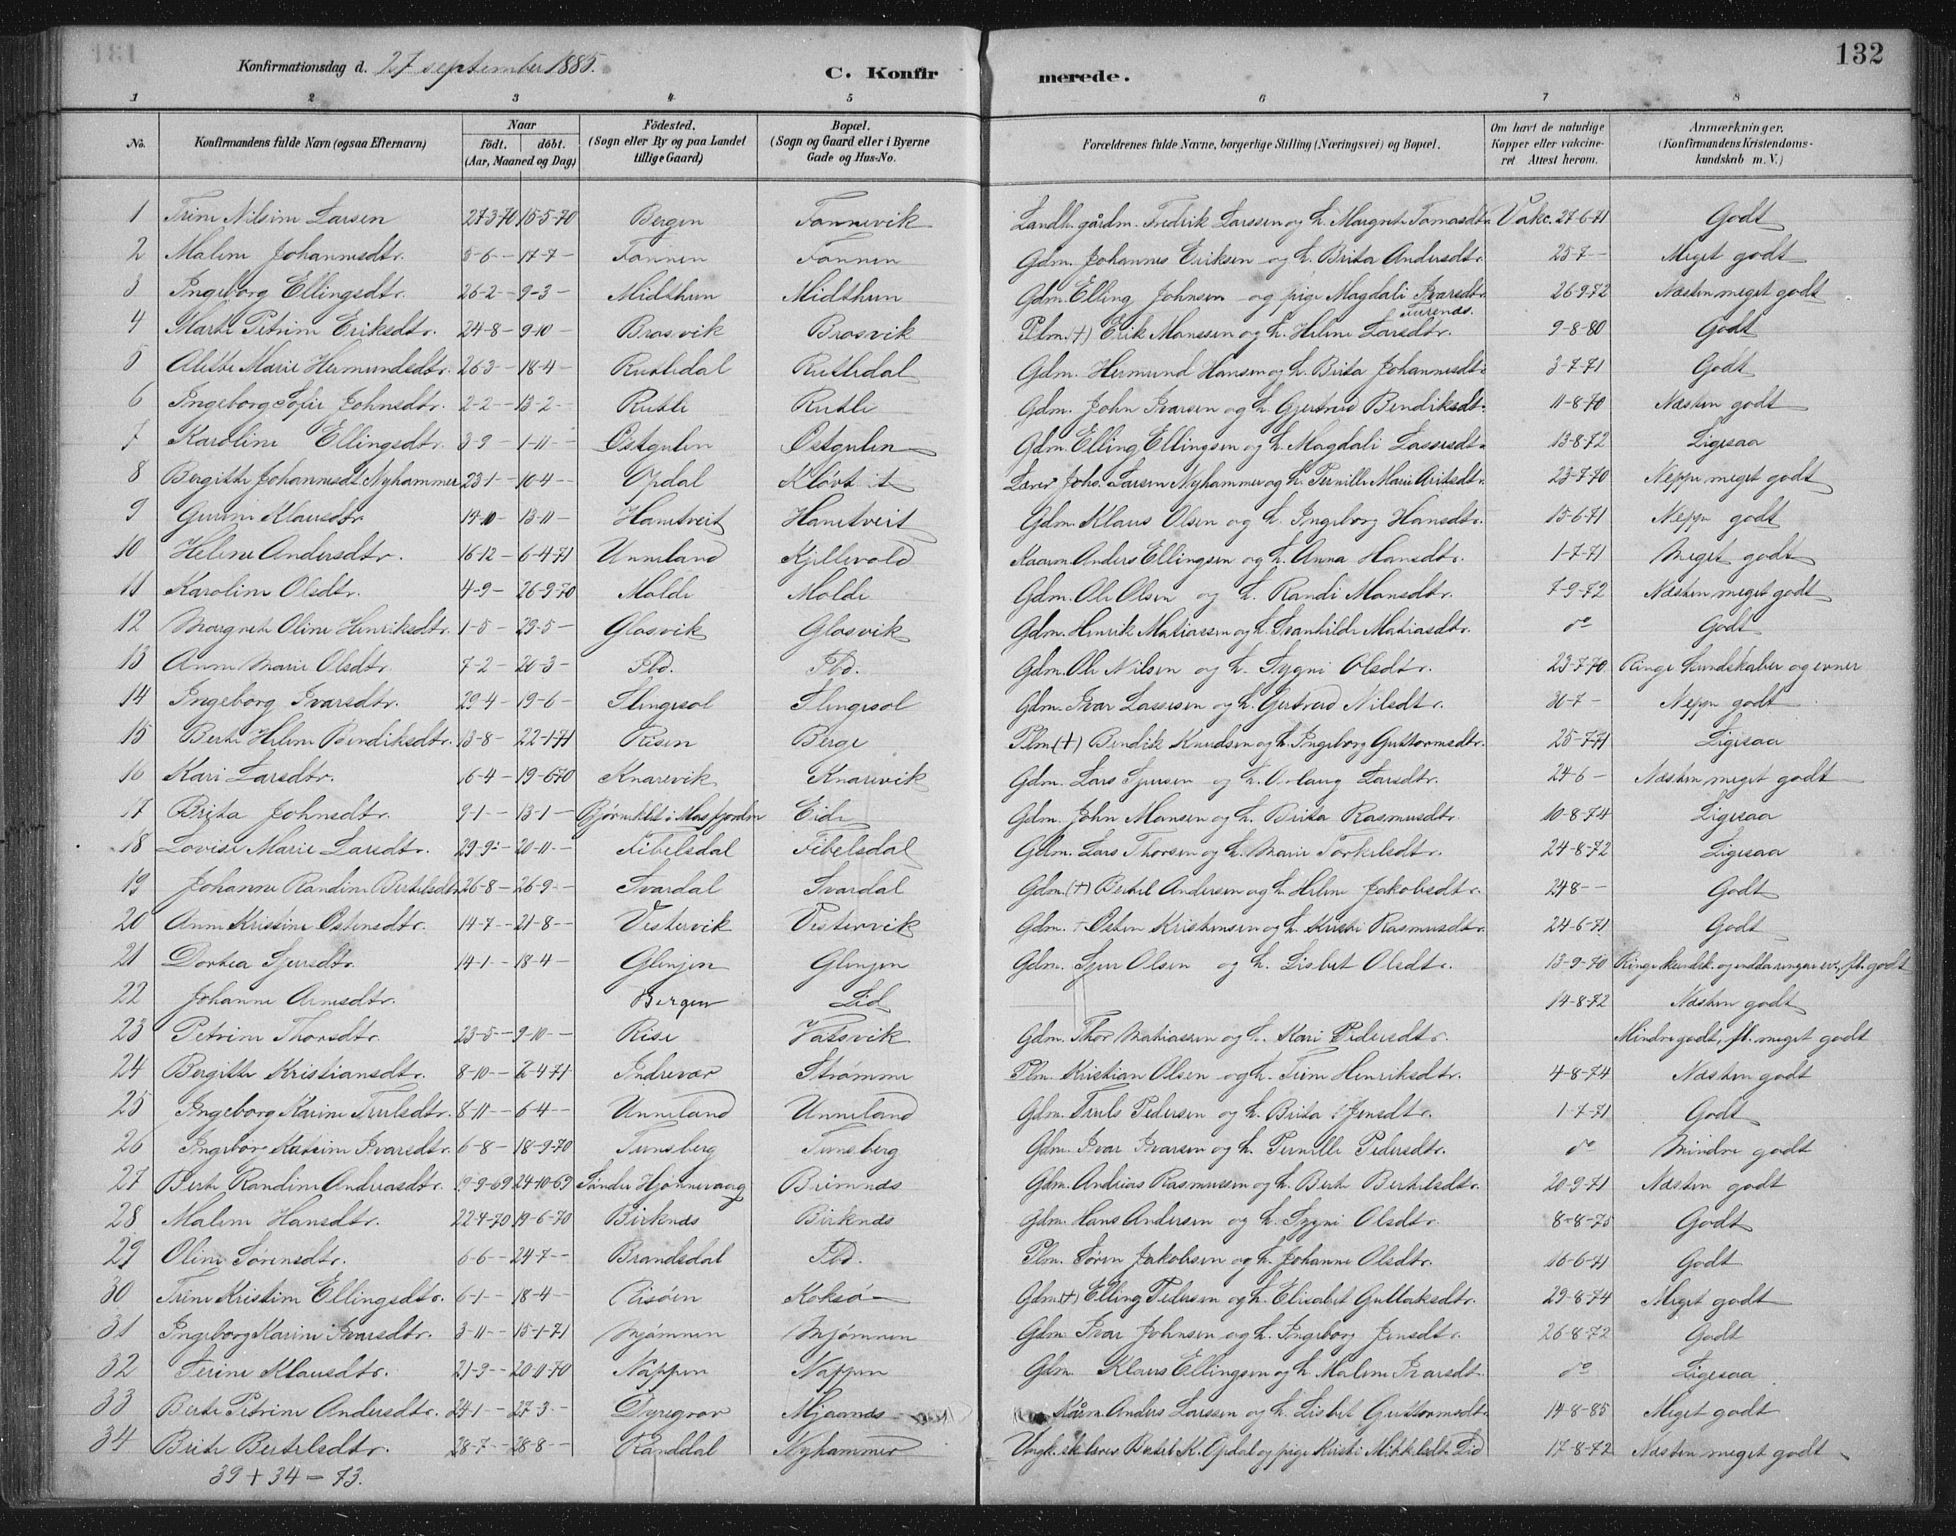 132
Konfirmationsdag d. 27 september 1885.
C. Konfirmerede.
1 2 3 4 5 6 7 8
No. | Konfirmandens fulde Navn (ogsaa Efternavn) | Naar født. døbt. (Aar, Maaned og Dag) | Fødested. (Sogn eller By og paa Landet tillige Gaard) | Bopæl. (Sogn og Gaard eller i Byerne Gade og Hus-No. | Forældrenes fulde Navne, borgerlige Stilling (Næringsvei) og Bopæl. | Om havt de naturlige Kopper eller vakcineret Attest herom. | Anmærkninger. (Konfirmandens Kristendomskundskab m. V.)
1 Trine Nilsine Larsen 27-3-70 15-5-70 Bergen Fonnevik Landh. gårdm. Fredrik Larssen og h. Margrete Tomasdtr Vakc. 27-6-71 Godt
2 Malene Johannesdtr. 5-6- 17-7- Fonnen Fonnen Gdm. Johannes Eriksen og h. Brita Andersdtr. 25-7- Meget godt
3 Ingeborg Ellingsdtr. 26-2- 9-3- Midthun Midthun Gdm. Elling Johnsen og pige Magdali Ivarsdtr 26-9-72 Næsten meget godt
4 Marte Petrine Eriksdtr. 24-8- 9-10- Brosvik Brosvik Plm. (+) Erik Monssen og h. Helene Larsdtr. 9-8-80 Godt
5 Alette Marie Hermundsdtr. 26-3- 18-4- Rutledal Rutledal Gdm. Hermund Hansen og h. Brita Johannesdtr 3-7-71 Godt
6 Ingeborg Sofie Johnsdtr. 2-2- 13-2- Rutle Rutle Gdm. John Ivarsen og h. Gjertrud Bendiksdtr. 11-8-70 Næsten godt
7 Karoline Ellingsdtr. 3-9- 1-11- Østgulen Østgulen Gdm. Elling Ellingsen og h. Magdali Lassesdtr 13-8-72 Ligesaa
8 Bergitte Johannesdt. Nyhammer 23-1- 10-4- Opdal Kløvt it Lærer Johs. Larsen Nyhammer og h. Pernille Marie 23-7-70 Neppe meget godt
9 Gurine Klausdtr. 14-10- 13-11- Hantveit Hantveit Gdm. Klaus Olsen og h. Ingeborg Hansdtr. 15-6-71 Neppe godt
10 Helene Andersdtr. 16-12- 6-4-71 Unneland Kjellevold Kaarm. Anders Ellingsen og h. Anna Hansdtr. 1-7-71 Meget godt
11 Karoline Olsdtr. 4-9- 26-9-70 Molde Molde Gdm. Ole Olsen og h. Randi Monsdtr. 7-9-72 Næsten meget godt
12 Margrete Oline Henriksdtr. 1-5- 29-5- Glosvik Glosvik Gdm. Henrik Matiassen og h. Svanhilde Matiasdtr. do Godt
13 Anne Marie Olsdtr. 7-2- 20-3- Flo. Flo. Gdm. Ole Nilsen og h. Sygni Olsdtr. 23-7-70 Ringe kundskaber og evner
14 Ingeborg Ivarsdtr. 29-4 19-6- Slengesol Slengesol Gdm. Ivar Lassesen og h. Gertrud Nilsdtr. 30-7- Neppe godt
15 Berte Helene Bendiksdtr. 13-8- 22-1-71 Risen Berge Plm (+) Bendik Knudsen og h. Ingeborg Guttormsdtr. 25-7-71 Ligesaa
16 Kari Larsdtr. 16-4- 19-6-70 Knarevik Knarevik Gdm. Lars Sjursen og h. Orlaug Larsdtr. 24-6- Næsten meget godt
17 Brita Johnsdtr. 9-1- 13-1- Bjørneklet i Masfjorden Eide Gdm. John Monsen og h. Brita Rasmusdtr. 10-8-74 Ligesaa
18 Lovise Marie Larsdtr. 29-9- 20-11- Fibelsdal Fibelsdal Gdm. Lars Thorsen og h. Marie Torkelsdtr. 24-8-72 Ligesaa
19 Johanne Randine Bertelsdtr 26-8- 26-9- Svardal Svardal Gdm. (+) Bertel Andersen og h. Helene Jakobsdtr. 24-8- Godt
20 Anne Kristine Østensdtr. 14-7- 21-8- Vestervik Vestervik Gdm. + Østen Kristensen og h. Kristi Rasmusdtr. 24-6-71 Godt
21 Dortea Sjursdtr. 14-1- 18-4- Glenjen Glenjen Gdm. Sjur Olsen og h. Lisbet Olsdtr. 13-9-70 Ringe kundsk. og fl. godt
22 Johanne Arnesdtr. Bergen Lid 14-8-72 Næsten godt
23 Petrine Thorsdtr. 23-5- 9-10- Rise Vatsvik Gdm. Thor Matiassen og h. Kari Pedersdtr. Mindre godt, fl. meget godt
24 Bergitte Kristiansdtr. 8-10- 2-4-71 Indrevær Strømme Plm. Kristian Olsen og h. Trine Henriksdtr. 4-8-74 Næsten godt
25 Ingeborg Karine Trulsdtr. 8-11- 6-4- Unneland Unneland Gdm. Truls Pedersen og h. Brita Jensdtr. 1-7-71 Godt
26 Ingebor Katrine Ivarsdtr. 6-8- 18-9-70 Tunsberg Tunsberg Gdm. Ivar Ivarsen og h. Pernille Pedersdtr. do Mindre godt
27 Berte Randine Andreasdtr. 9-9-69 24-10-69 Sønder Hjønnevaag Brimnes Gdm. Andrias Rasmussen og h. Berte Bertelsdtr. 20-9-71 Næsten godt
28 Malene Hansdtr. 22-4-70 19-6-70 Birknes Birknes Gdm. Hans Andersen og h. Sygni Olsdtr. 8-8-75 Godt
29 Oline Sørensdtr. 6-6- 24-7- Brandsdal Flo. Plm. Søren Jakobsen og h. Johanne Olsdtr. 16-6-71 Godt
30 Trine Kristine Ellingsdtr. 6-1- 18-4- Risøen Koksø Gdm (+) Elling Pedersen og h. Elisabet Gullaksdtr. 29-8-74 Meget godt
31 Ingeborg Karine Ivarsdtr. 3-11- 15-1-71 Mjømnen Mjømnen Gdm. Ivar Johnsen og h. Ingeborg Jensdtr. 26-8-72 Godt
32 Serine Klausdtr. 21-9- 20-11-70 Nappen Nappen Gdm. Klaus Ellingsen og h. Malene Ivarsdtr. do Ligesaa
33 Berte Petrine Andersdtr. 24-1- 27-3- Dyregrov Mjaanes Kårm. Anders Larssen og h. Lisbet Guttormsdtr 14-8-85 Meget godt
34 Brite Bertelsdtr. 28-7- 28-8- Randdal Nyhammer Ungk. skolelærer Bertel K. Opdal og pige Kristi Mikkelsdtr. Lid 17-8-72 Næsten meget godt
39 + 34 = 73.